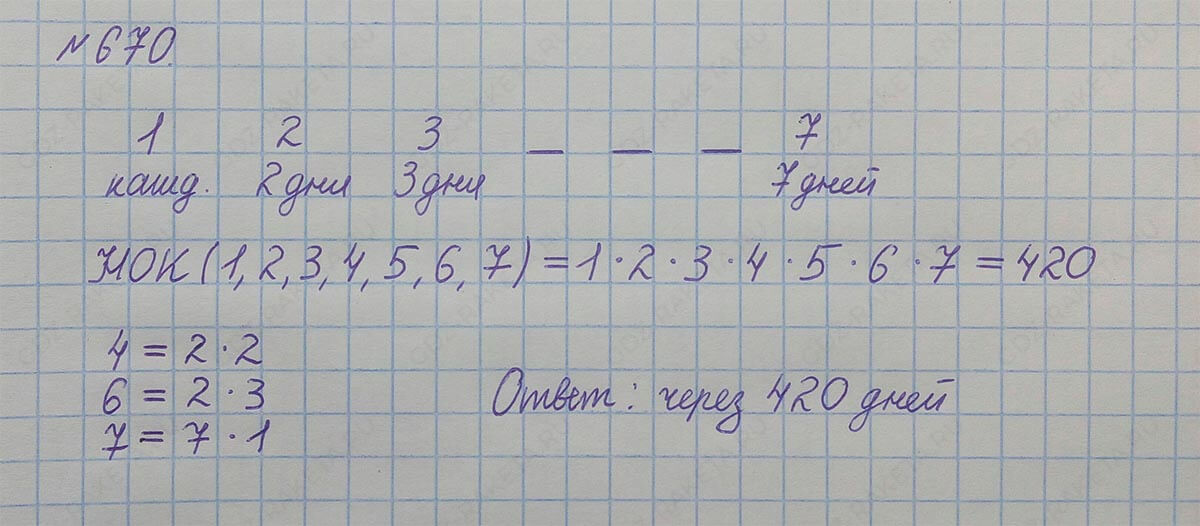 №670.
1 2 3 _ _ _ 7
кашд. 2 дни 3 дни 7 дней
НОК (1, 2, 3, 4, 5, 6, 7) = 1 · 2 · 3 · 4 · 5 · 6 · 7 = 420
4 = 2 · 2
6 = 2 · 3
7 = 7 · 1
Ответ: через 420 дней